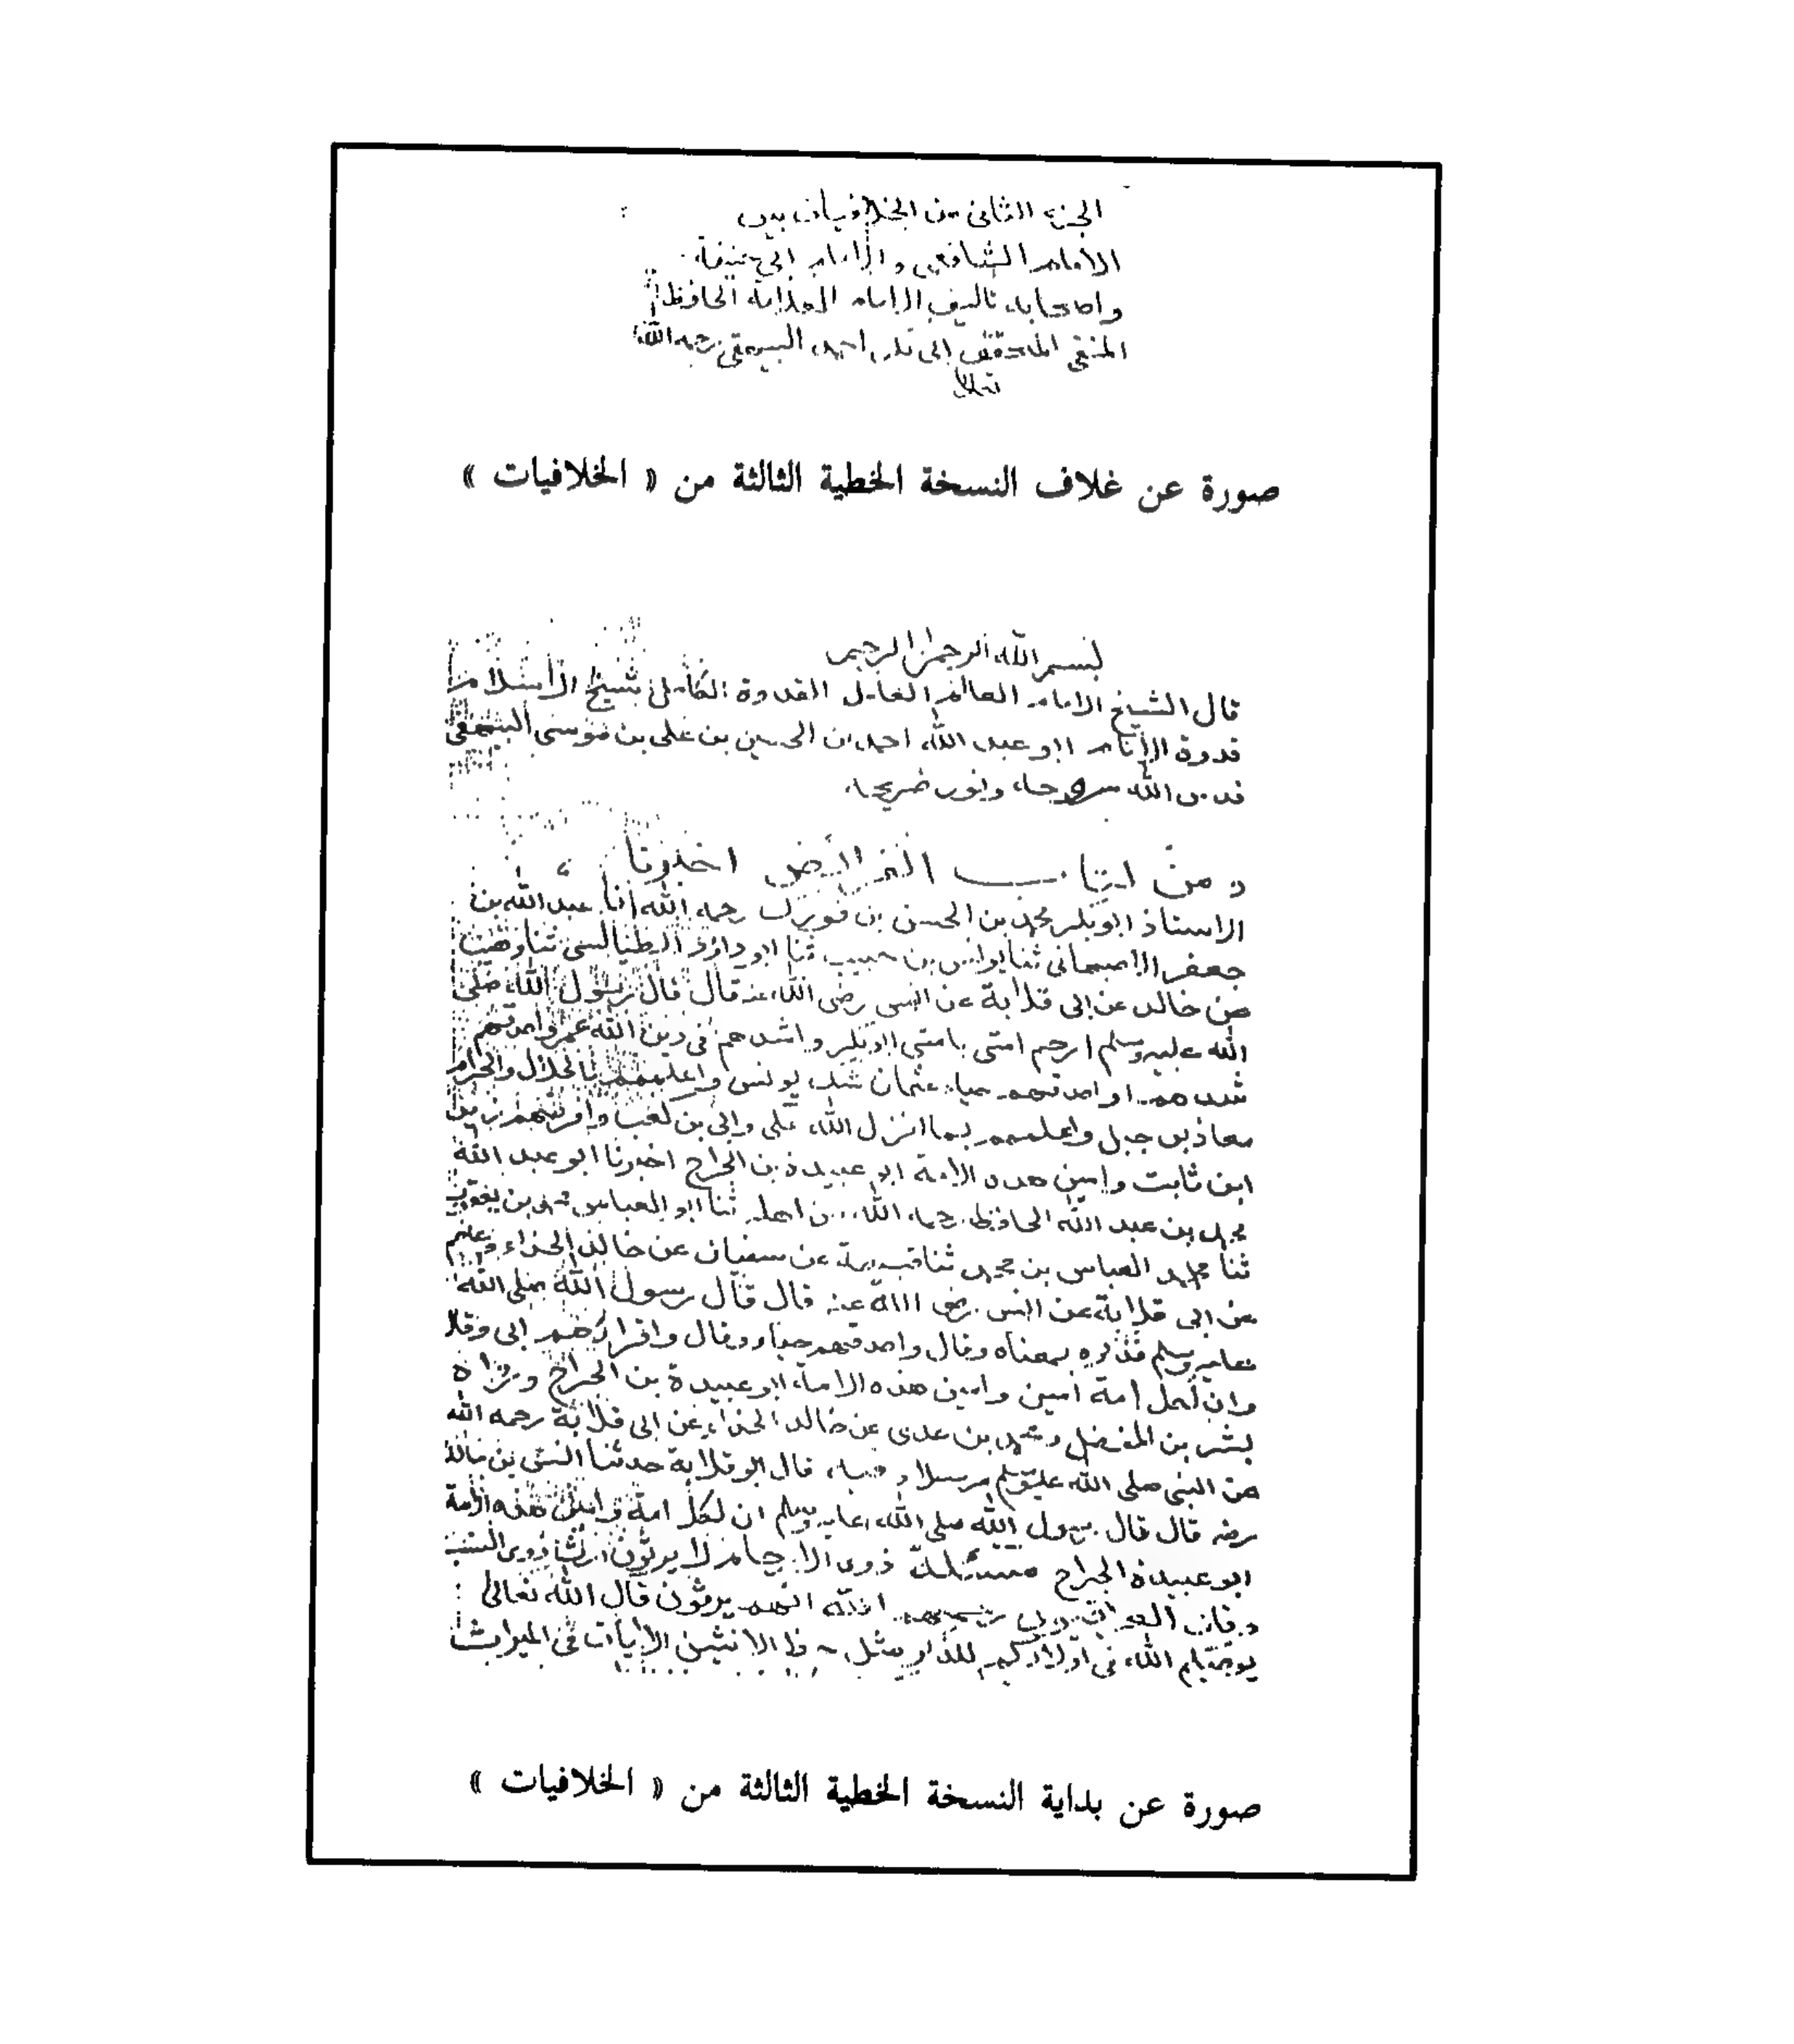 الجزء الثانى من الخلافيات بين
الامام الشافعى والامام ابى حنيفة
واصحابه تاليف الامام العلامة الحافظ
المتقى المحقق ابى بكر احمد البيهقى رحمه الله
تعالى
صورة عن غلاف النسخة الخطية الثالثة من « الخلافيات »
بسم الله الرحمن الرحيم
قال الشيخ الامام العالم العامل القدوة الكامل شيخ الاسلام
قدوة الانام ابو عبد الله احمد بن الحسين بن على بن موسى البيهقى
قدس الله روحه ونور ضريحه
ومن كتاب الفرائض اخبرنا
الاستاذ ابو بكر محمد بن الحسن بن فورك رحمه الله انا عبد الله بن
جعفر الاصبهانى ثنا يونس بن حبيب ثنا ابو داؤد الطيالسى ثنا وهيب
عن خالد عن ابى قلابة عن انس رضى الله عنه قال قال رسول الله صلى
الله عليه وسلم ارحم امتى بامتى ابو بكر واشدهم فى دين الله عمر واصدقهم
حياء عثمان يونس واعلمهم بالحلال والحرام
معاذ بن جبل واعلمهم بما انزل الله على وابى بن كعب وافرضهم زيد
ابن ثابت وامين هذه الامة ابو عبيدة بن الجراح اخبرنا ابو عبد الله
محمد بن عبد الله الحافظ رحمه الله من اصله ثنا ابو العباس محمد بن يعقوب
ثنا العباس بن محمد ثنا قبيصة عن سفيان عن خالد الحذاء وعاصم
عن ابى قلابة عن انس رضى الله عنه قال قال رسول الله صلى الله
عليه وسلم فذكره بمعناه وقال واصدقهم حياء وقال واقرأهم ابى وقال
وان لكل امة امين وامين هذه الامة ابو عبيدة بن الجراح ورواه
بشر بن المفضل ومحمد بن عدى عن خالد الحذاء عن ابى قلابة رحمه الله
عن النبى صلى الله عليه وسلم مرسلا قال ابو قلابة حدثنا انس بن مالك
رضه قال قال رسول الله صلى الله عليه وسلم ان لكل امة وامين هذه الامة
ابو عبيدة الجراح مسئلة ذوى الارحام لا يرثون
وقال العراقيون يرثون قال الله تعالى
يوصيكم الله فى اولادكم للذكر مثل حظ الانثيين الايات فى الميراث
صورة عن بداية النسخة الخطية الثالثة من « الخلافيات »